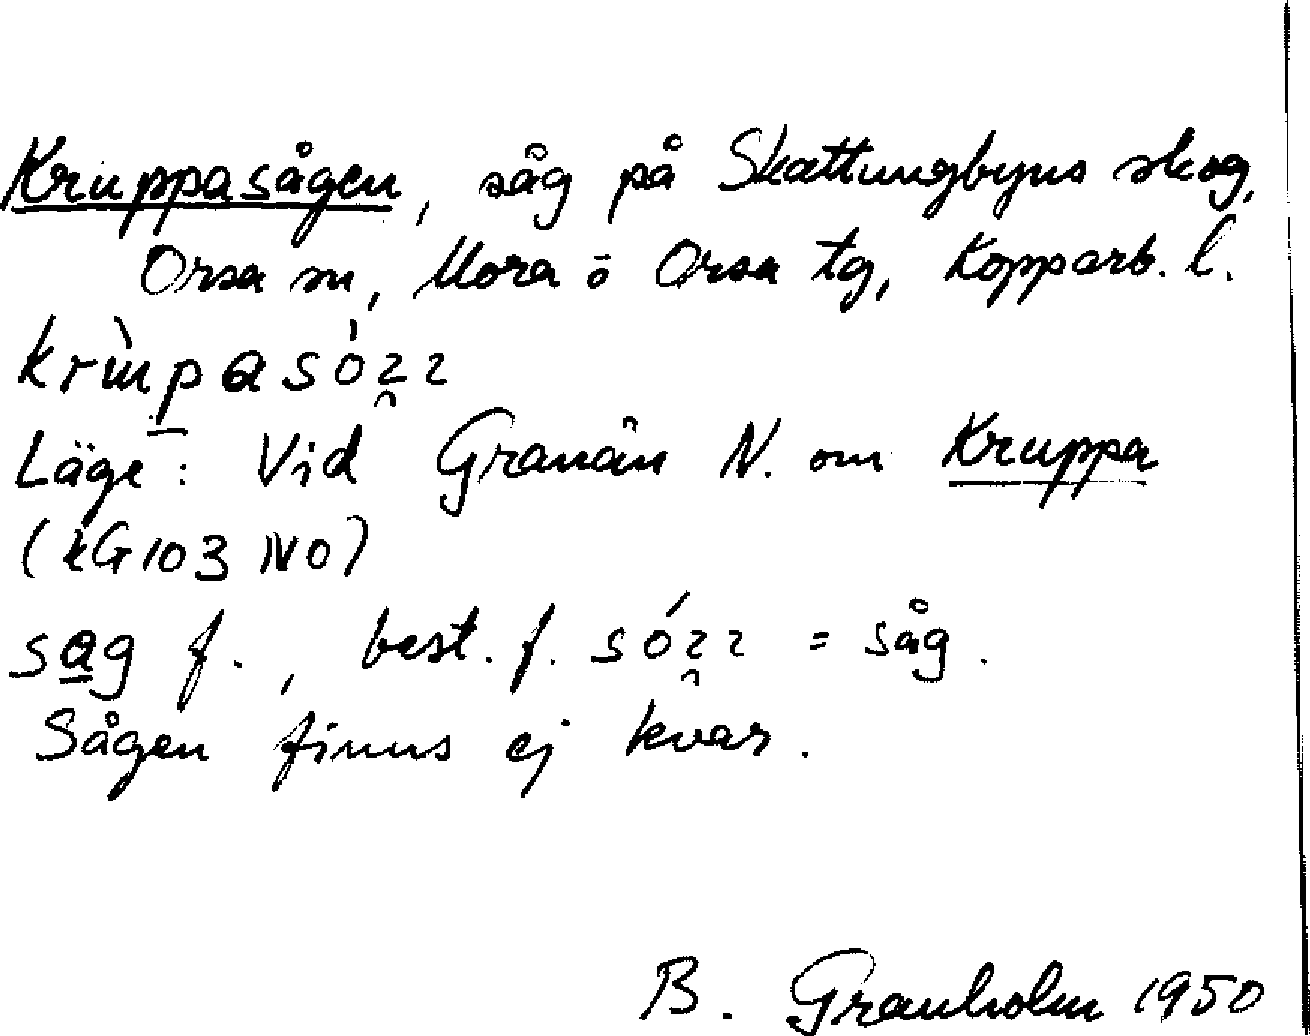 Kruppasågen, såg på Skattungbyns skog,
Orsa sn, Mora o Orsa tg, Kopparb. l.
Läge: Vid Granån N. om Kruppa
(kG103 NO)
sag f., best. f. = såg.
Sågen finns ej kvar.
B. Granholm 1950